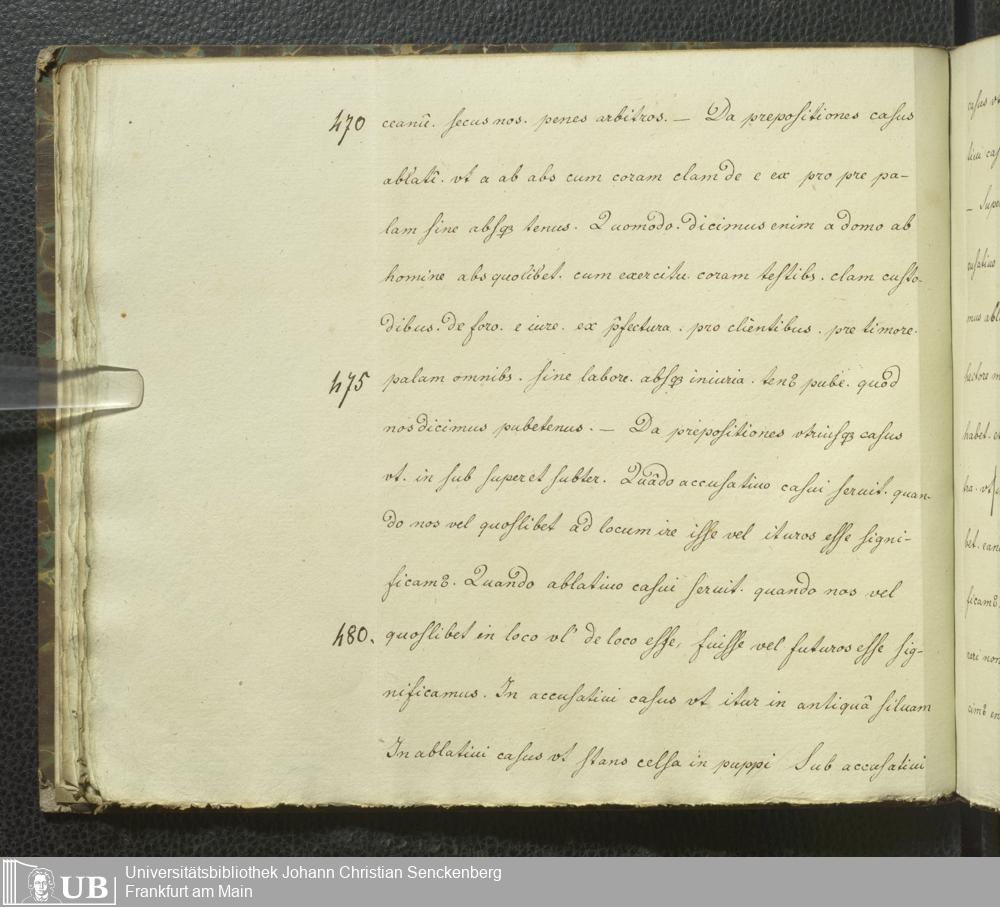 470 ceanū. secus nos. penes arbitros. — Da prepositiones casus
ablatī. vt a ab abs cum coram clam de e ex pro pre pa-
lam sine absqꝫ tenus. Quomodo. dicimus enim a domo ab
homine abs quolibet. cum exercitu. coram testibs. clam custo-
dibus. de foro. e iure. ex p̄fectura. pro clientibus. pre timore.
475 palam omnibs. sine labore. absqꝫ iniuria. tenꝰ pube. quod
nos dicimus pubetenus. — Da prepositiones vtriusqꝫ casus
vt. in sub super et subter. Quādo accusatiuo casui seruit. quan-
do nos vel quoslibet ad locum ire isse vel ituros esse signi-
ficamꝰ. Quando ablatiuo casui seruit. quando nos vel
480. quoslibet in loco vl' de loco esse, fuisse vel futuros esse sig-
nificamus. In accusatiui casus vt itur in antiquā siluam
In ablatiui casus vt stans celsa in puppi Sub accusatiui
casus
tiui
— Supe
usatiuo
mus abl
hectore
habet.
tra. vt
bet.
ficamꝰ
rari non
cimꝰ en
UB Universitätsbibliothek Johann Christian Senckenberg
Frankfurt am Main